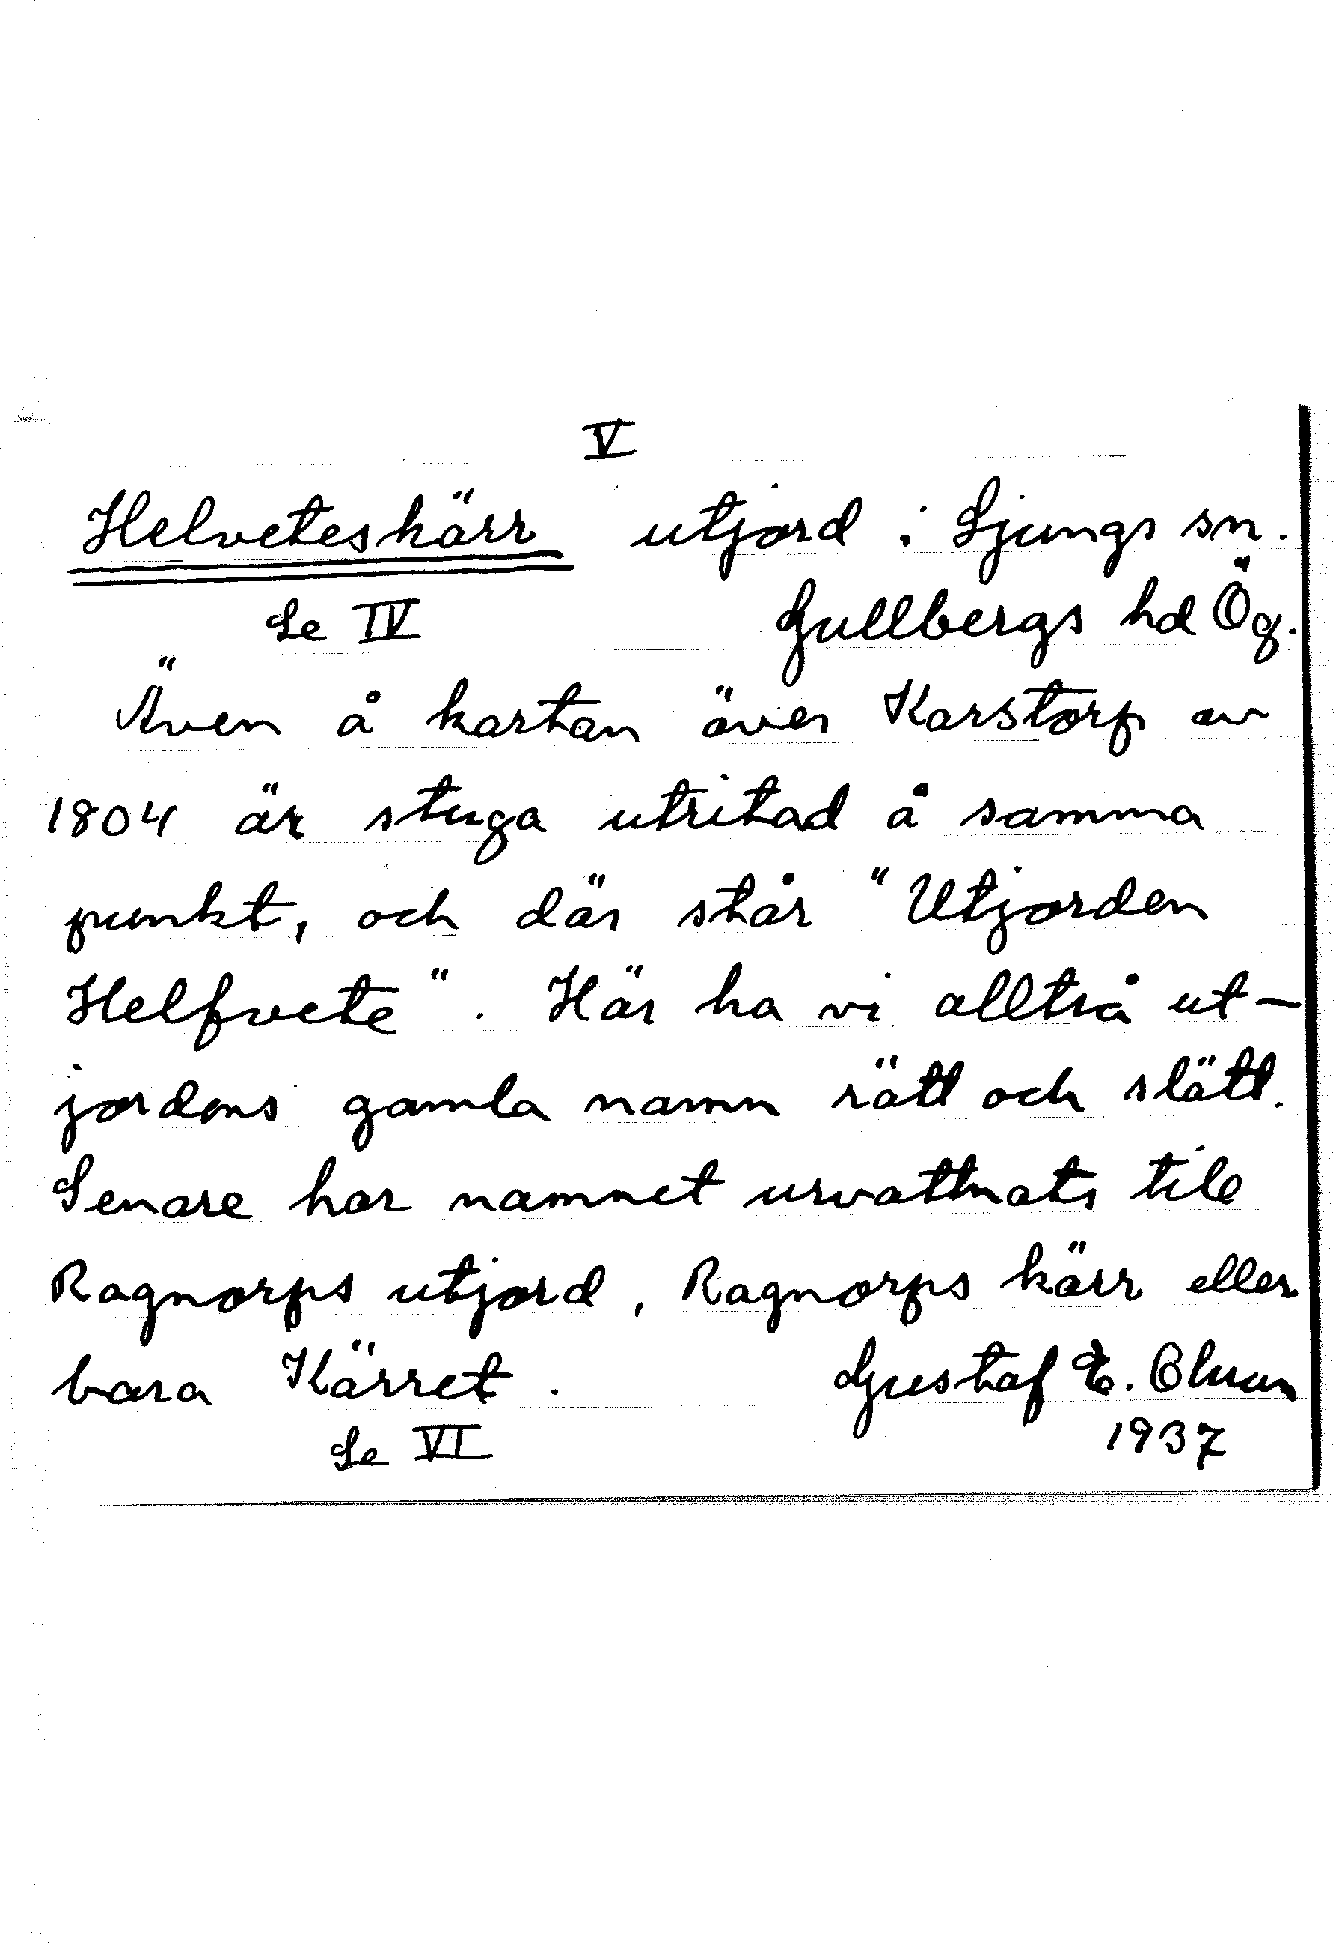 V
Helveteskärr utjord i Ljungs sn.
Se IV Gullbergs hd Ög.
Även å kartan över Karstorp av
1804 är stuga utritad å samma
punkt, och där står "Utjorden
Helfvete". Här ha vi alltså ut-
jordens gamla namn rätt och slätt.
Senare har namnet urvattnats till
Ragnorps utjord, Ragnorps kärr eller
bara Kärret. Gustaf E.
Se VI 1937